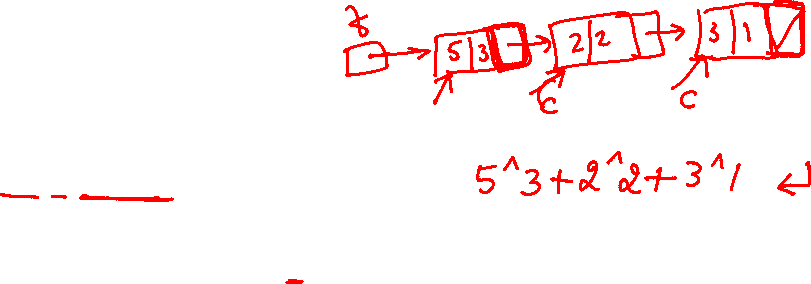 5 3 2 2 3 1
C C
5^3+2^2+3^1 ↵